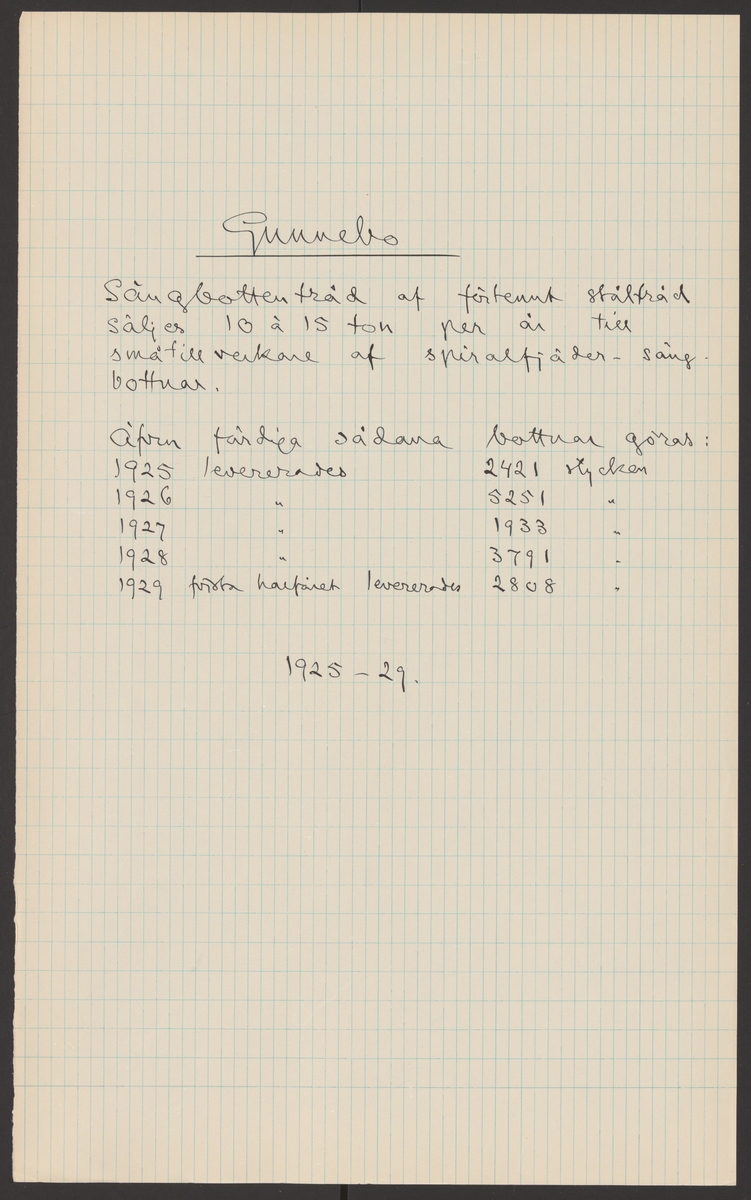 Gunnebo
Sängbottentråd af förtennt ståltråd
säljes 10 à 15 ton per år till
småtillverkare af spiralfjäder- säng-
bottnar.
Äfven färdiga sådana bottnar göras:
1925 levererades 2421 stycken
1926 " 5251 "
1927 " 1933 "
1928 " 3791 "
1929 första halfåret levererades 2808 "
1925 – 29.